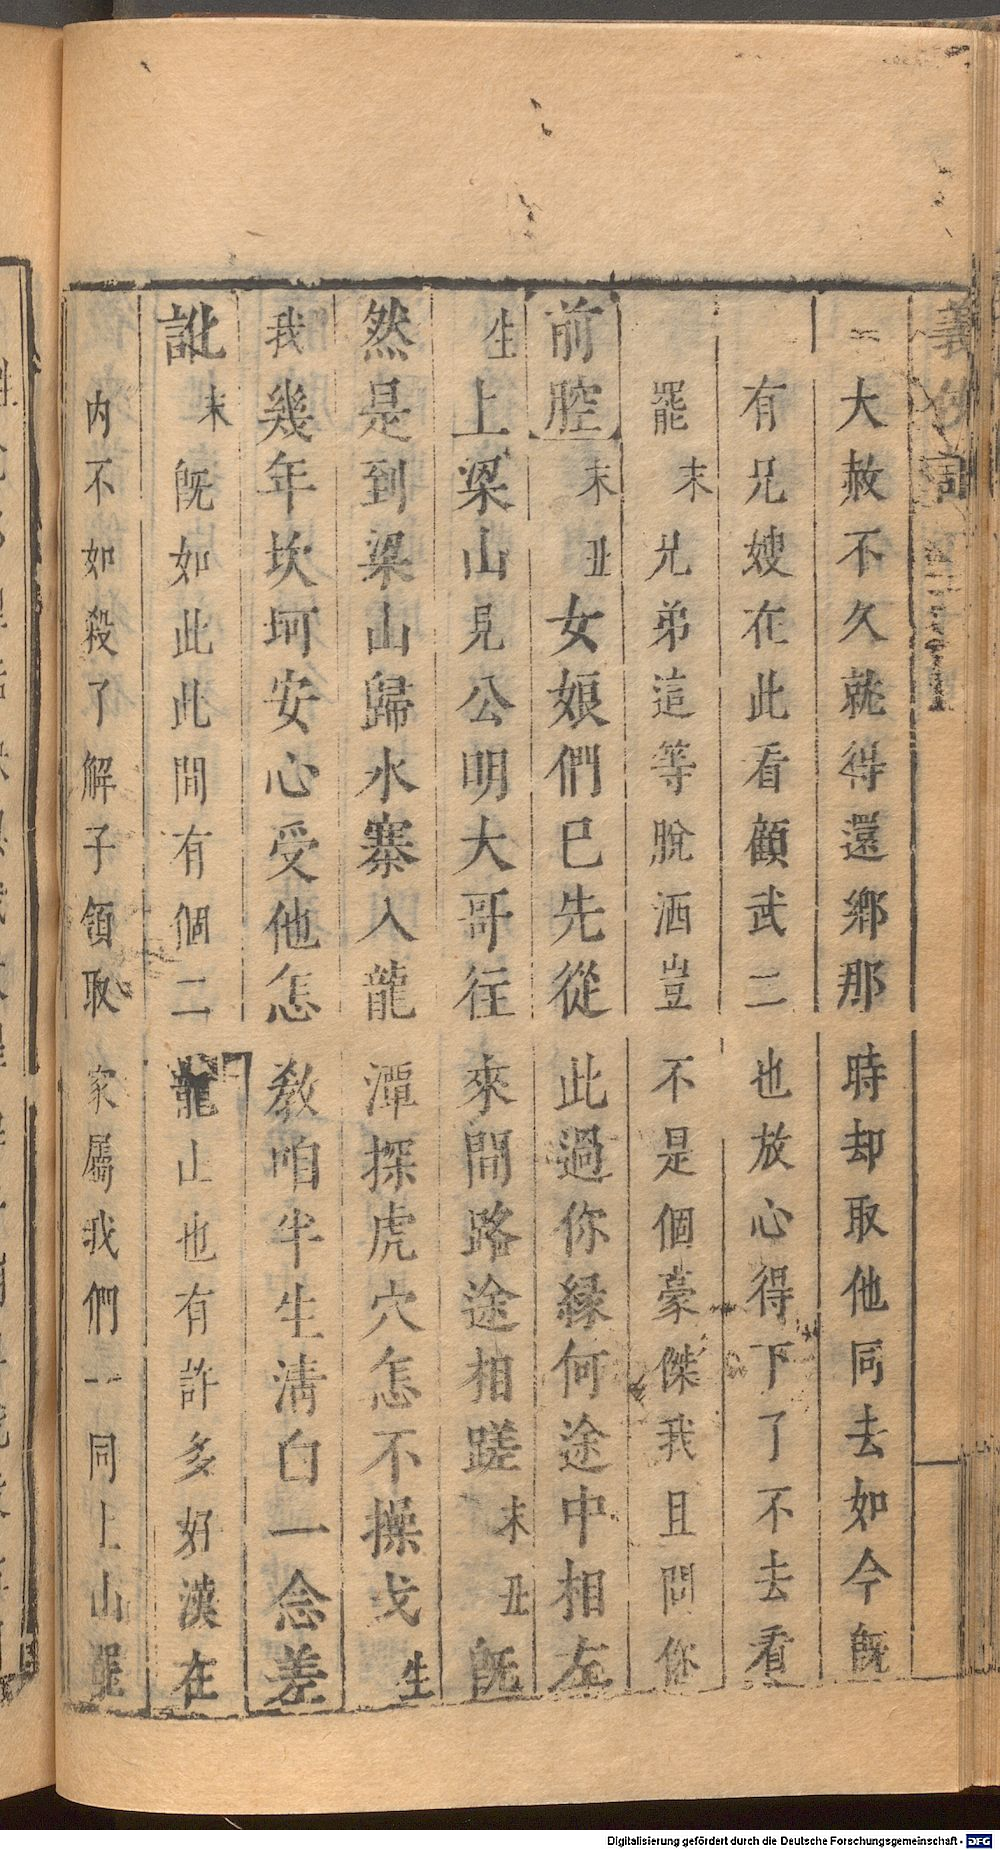 大赦不久就得還鄉那時却取他同去如今旣
有兄嫂在此看顧武二也放心得下了不去看
罷末兄弟這等脫洒豈不是個豪傑我且問你
前腔末丑女娘們已先從此過你緣何途中相左
生上梁山見公明大哥往來間路途相蹉末丑旣
然是到梁山歸水寨入龍潭探虎穴怎不操戈生
我幾年坎坷安心受他怎教咱半生清白一念差
訛末旣如此此間有個二龍山也有許多好漢在
內不如殺了解子領取家屬我們一同上山
Digitalisierung gefördert durch die Deutsche Forschungsgemeinschaft - DFG